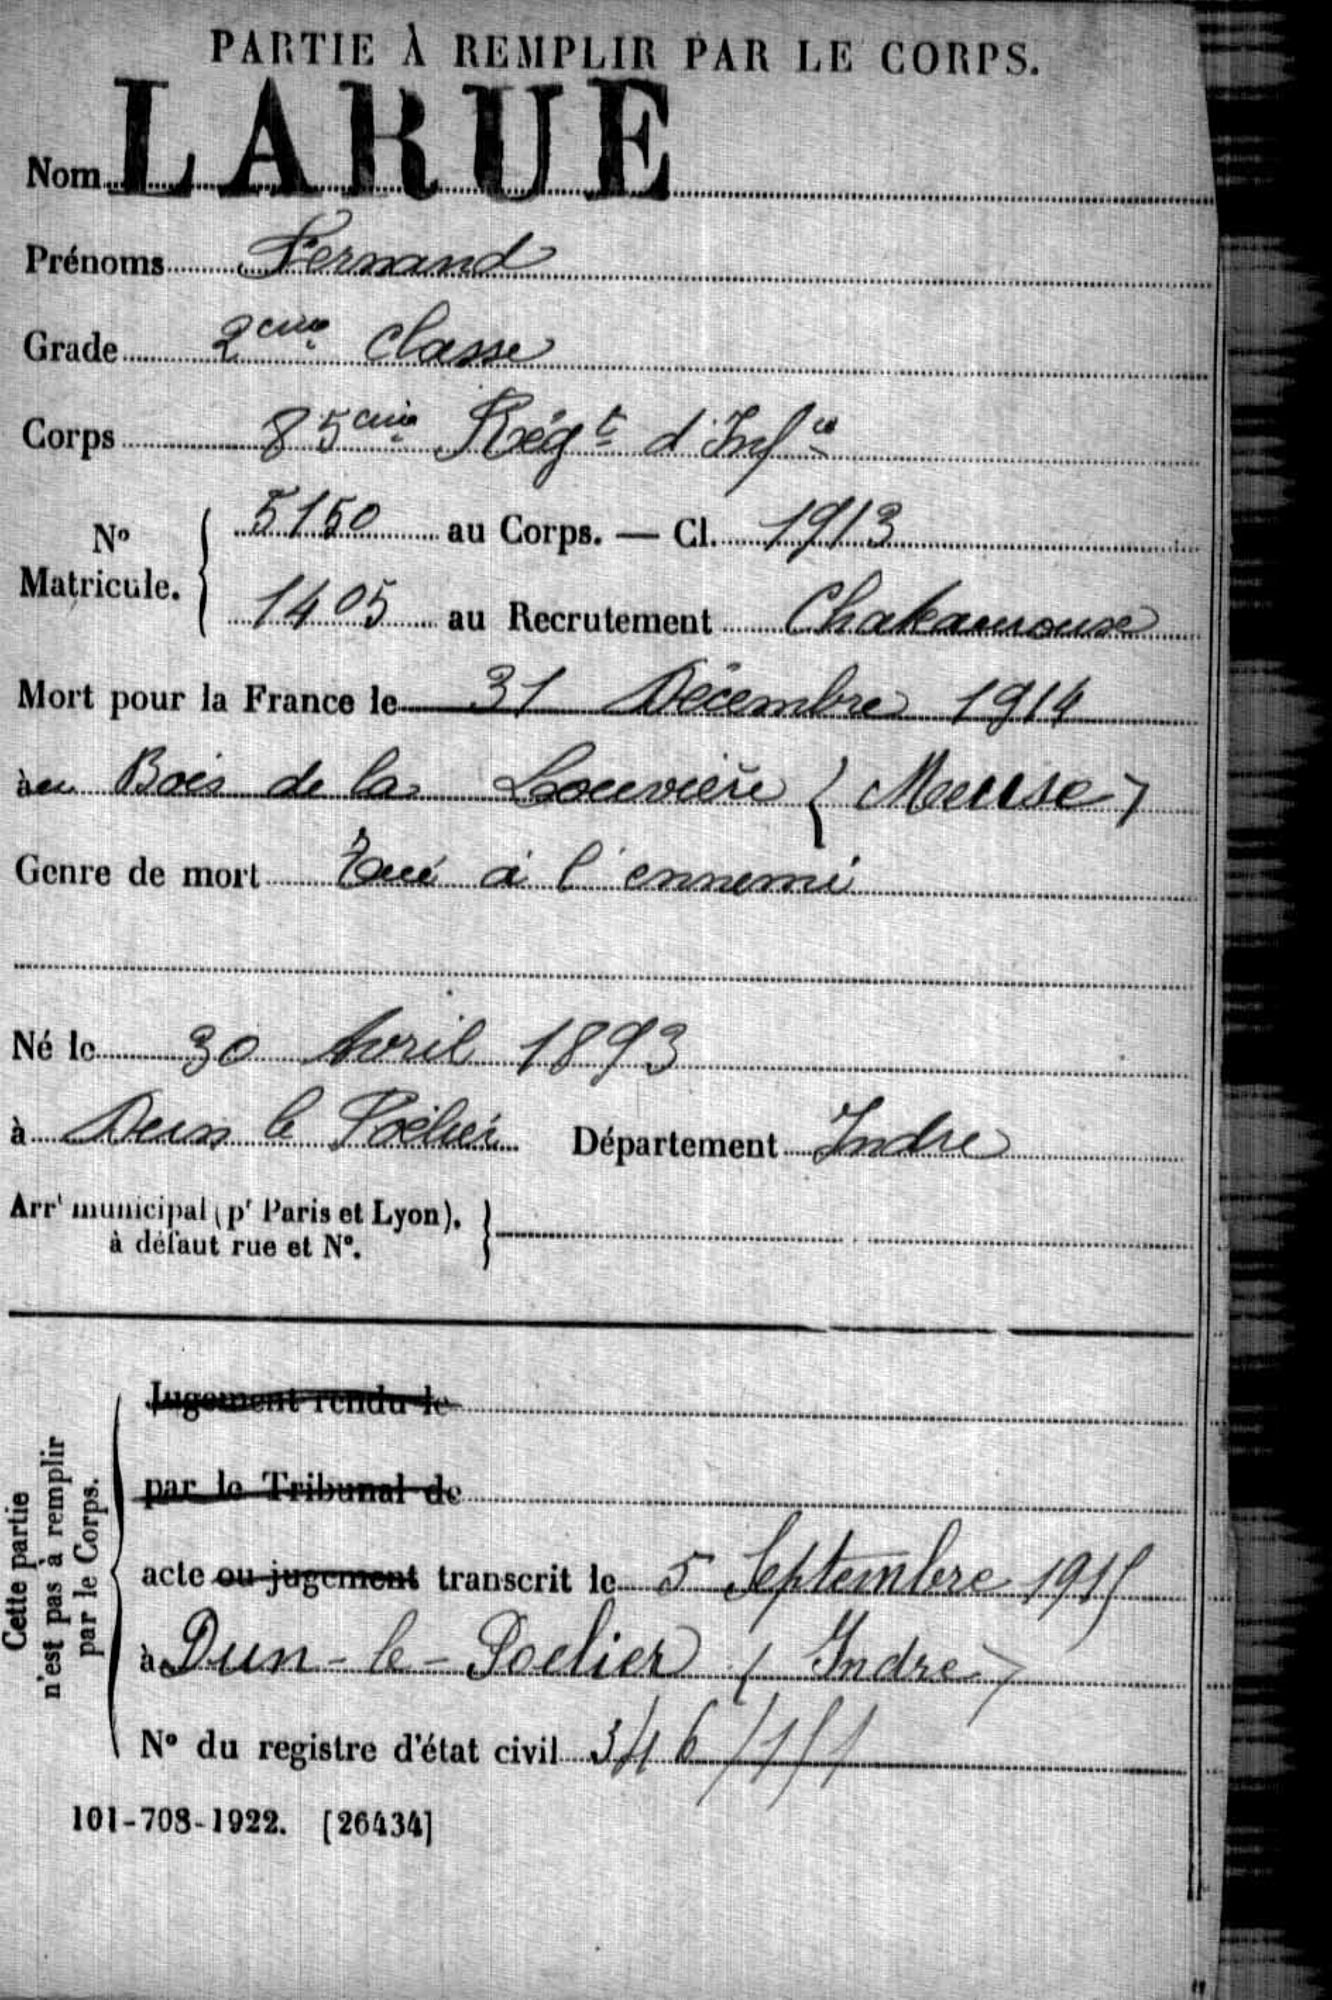 PARTIE À REMPLIR PAR LE CORPS.
Nom LARUE
Prénoms Fernand
Grade 2ème Classe
Corps 85ème Régt d'Infie
No Matricule. { 5150 au Corps. — Cl. 1913
1405 au Recrutement Chateauroux
Mort pour la France le 31 Décembre 1914
au Bois de la Louvière (Meuse)
Genre de mort Tué à l'ennemi
Né le 30 Avril 1893
à Dun le Poëlier Département Indre
Arrt municipal (pr Paris et Lyon), }
à défaut rue et No.
Cette partie
n'est pas à remplir
par le Corps.
Jugement rendu le
par le Tribunal de
acte ou jugement transcrit le 5 Septembre 1915
à Dun-le-Poelier (Indre)
No du registre d'état civil
101-708-1922. [26434]